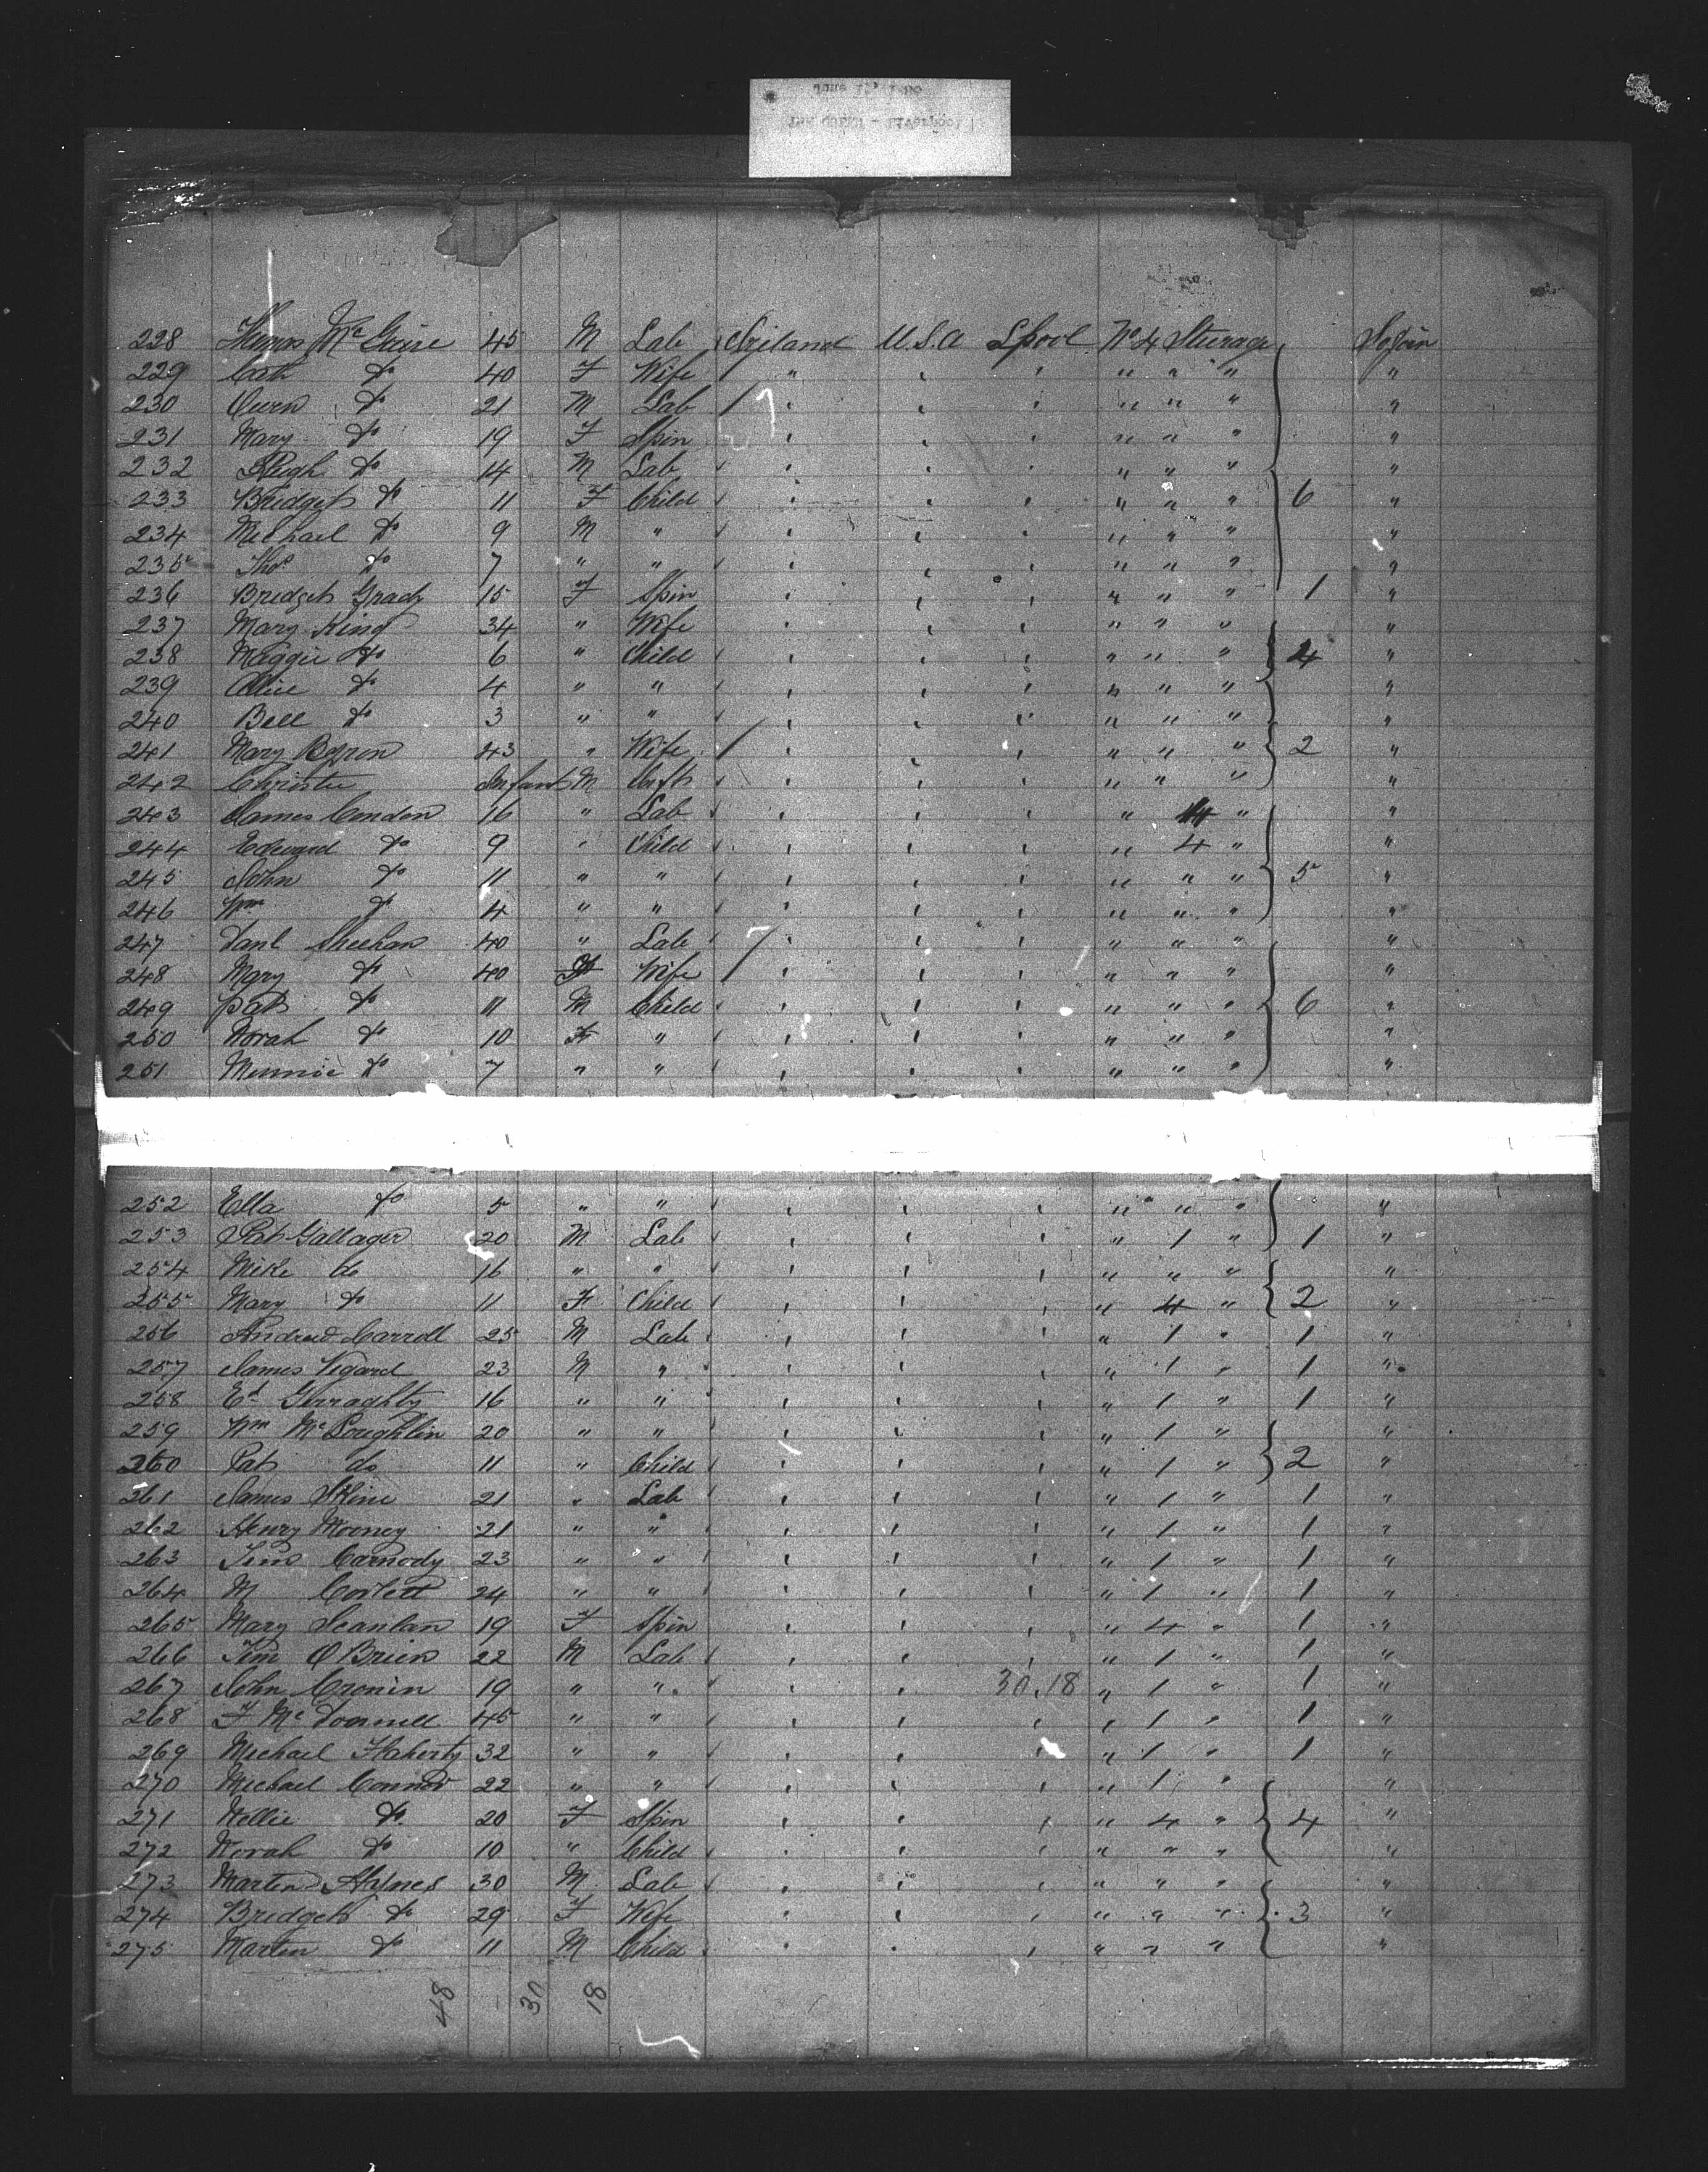 228 McGuire 45 M Lab Ireland U.S.A Lpool No 4 Steerage Sojour
229 Cath do 40 F Wife " " " " " " "
230 Owen do 21 M Lab " " " " " " "
231 Mary do 19 F Spin " " " " " " "
232 Hugh do 14 M Lab " " " " " " "
233 Bridget do 11 F Child " " " " " " 6 "
234 Michael do 9 M " " " " " " " "
235 Thos do 7 " " " " " " " " "
236 Bridget Grady 15 F Spin " " " " " " 1 "
237 Mary King 34 " Wife " " " " " " "
238 Maggie do 6 " Child " " " " " " 4 "
239 Alice do 4 " " " " " " " " "
240 Bell do 3 " " " " " " " " "
241 Mary Byron 43 " Wife " " " " " " 2 "
242 Christie Infant M Infts " " " " " " "
243 James Condon 16 " Lab " " " " 4 " "
244 Edward do 9 " Child " " " " 4 " "
245 John do 11 " " " " " " " " 5 "
246 Wm do 4 " " " " " " " " "
247 Danl Sheehan 40 " Lab " " " " " " "
248 Mary do 40 F Wife " " " " " " "
249 Pat do 11 M Child " " " " " " 6 "
250 Norah do 10 F " " " " " " " "
251 Minnie do 7 " " " " " " " " "
252 Ella do 5 " " " " " " " " "
253 Pat Gallager 20 M Lab " " " " 1 " 1 "
254 Mike do 16 " " " " " " " " "
255 Mary do 11 F Child " " " " 4 " 2 "
256 Andrew Carroll 25 M Lab " " " " 1 " 1 "
257 James Vegard 23 M " " " " " 1 " 1 "
258 Ed Gerraghty 16 " " " " " " 1 " 1 "
259 Wm McLoughlin 20 " " " " " " 1 " "
260 Pat do 11 " Child " " " " 1 " 2 "
261 James 21 " Lab " " " " 1 " 1 "
262 Henry Mooney 21 " " " " " " 1 " 1 "
263 Tim Carmody 23 " " " " " " 1 " 1 "
264 M Corlett 24 " " " " " " 1 " 1 "
265 Mary Scanlan 19 F Spin " " " " 4 " 1 "
266 Tim O'Brien 22 M Lab " " " " 1 " 1 "
267 John Cronin 19 " " " " 30.18 " 1 " 1 "
268 F McDonnell 45 " " " " " " 1 " 1 "
269 Michael Flaherty 32 " " " " " " 1 " 1 "
270 Michael Connor 22 " " " " " " 1 " "
271 Nellie do 20 F Spin " " " " 4 " 4 "
272 Norah do 10 " Child " " " " " " "
273 Martin Haynes 30 M Lab " " " " " " "
274 Bridget do 29 F Wife " " " " " " 3 "
275 Martin do 11 M Child " " " " " " "
48 30 18